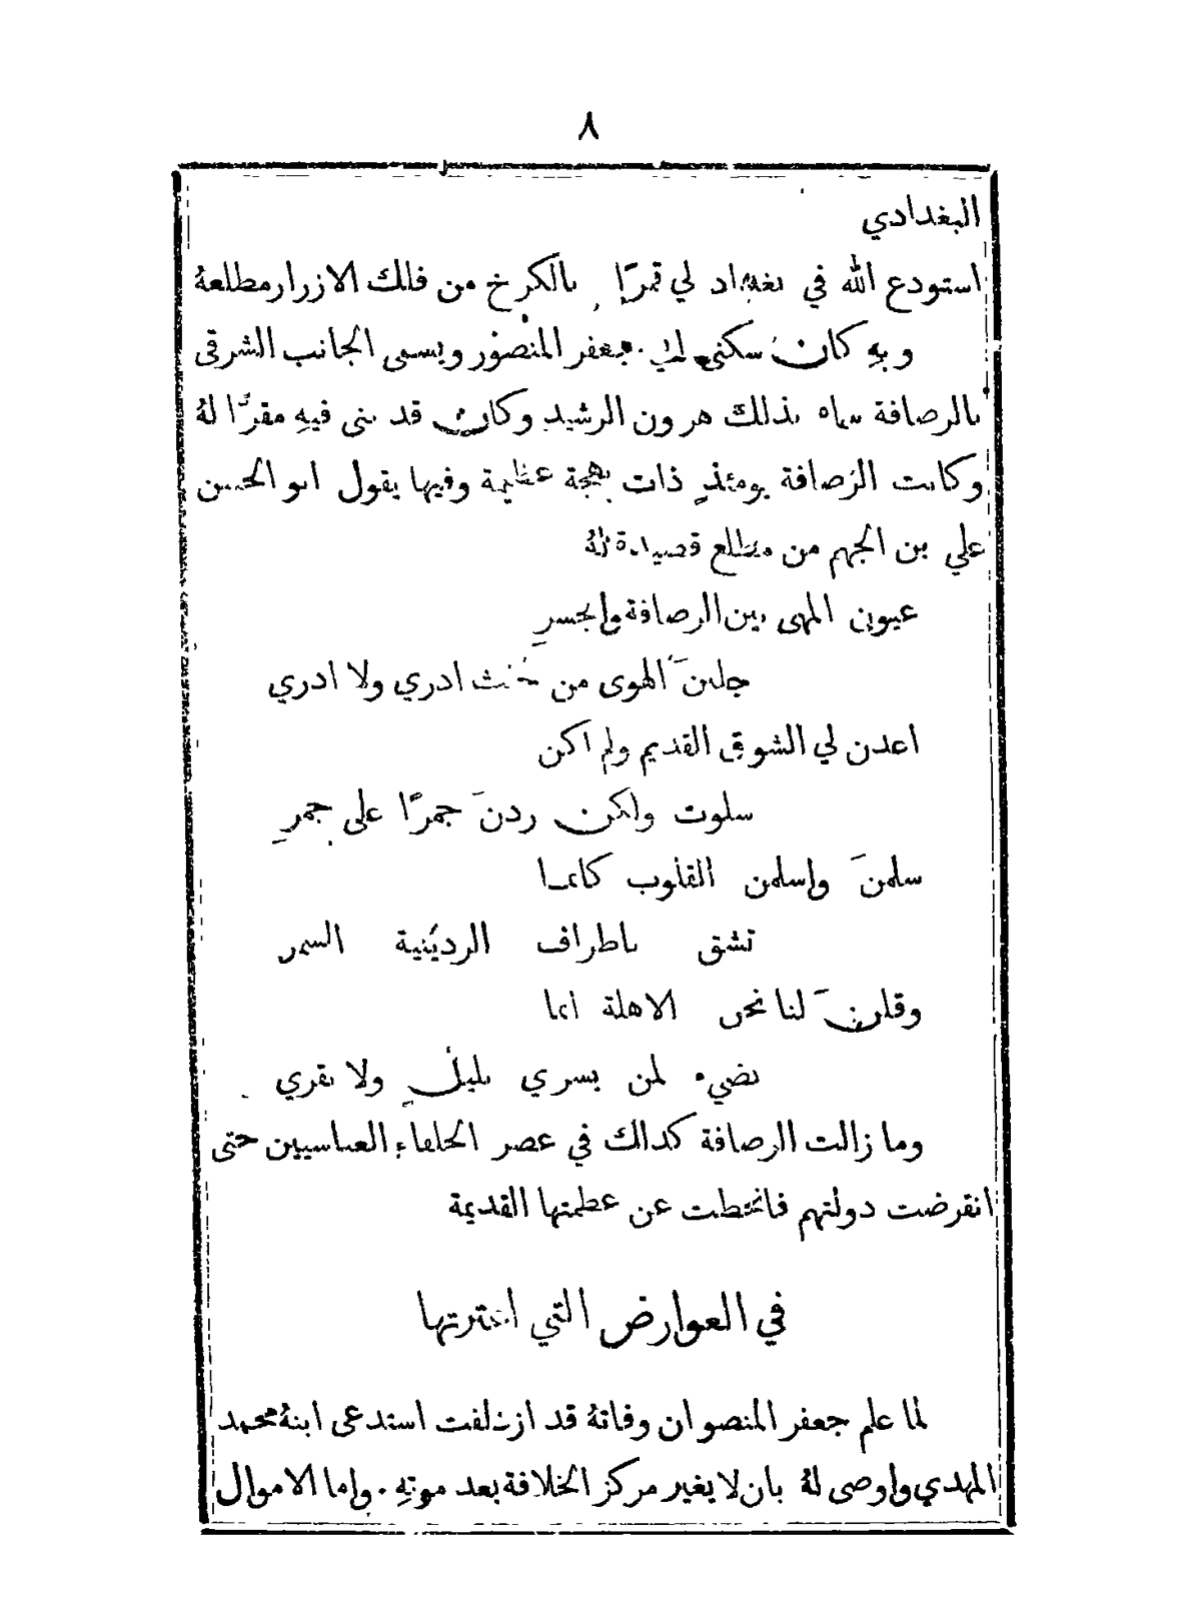 ٨
البغدادي
استودع الله في بغداد لي قمرًا بالكرخ من فلك الازرار مطلعهُ
وبهِ كان سكنى جعفر المنصور ويسمى الجانب الشرقي
بالرصافة سماه بذلك هرون الرشيد وكان قد بنى فيهِ مقرًّا لهُ
وكانت الرُصافة يومئذٍ ذات بهجة عظيمة وفيها يقول ابو الحسن
علي بن الجهم من مطلع قصيدة لهُ
عيون المهى بين الرصافة والجسرِ
جلبنَ الهوى من حيث ادري ولا ادري
اعدن لي الشوق القديم ولم اكن
سلوت ولكن زدنَ جمرًا على جمرِ
سلمنَ واسلمن القلوب كانما
تشق باطراف الردَينية السمر
وقلنَ لنا نحن الاهلة انما
نضيء لمن يسري بليلٍ ولا نقري
وما زالت الرصافة كذلك في عصر الخلفاء العباسيين حتى
انقرضت دولتهم فانحطت عن عظمتها القديمة
في العوارض التي اعترتها
لما علم جعفر المنصو ان وفاتهُ قد ازدلفت استدعى ابنهُ محمد
المهدي واوصى لهُ بان لا يغير مركز الخلافة بعد موتهِ . واما الاموال